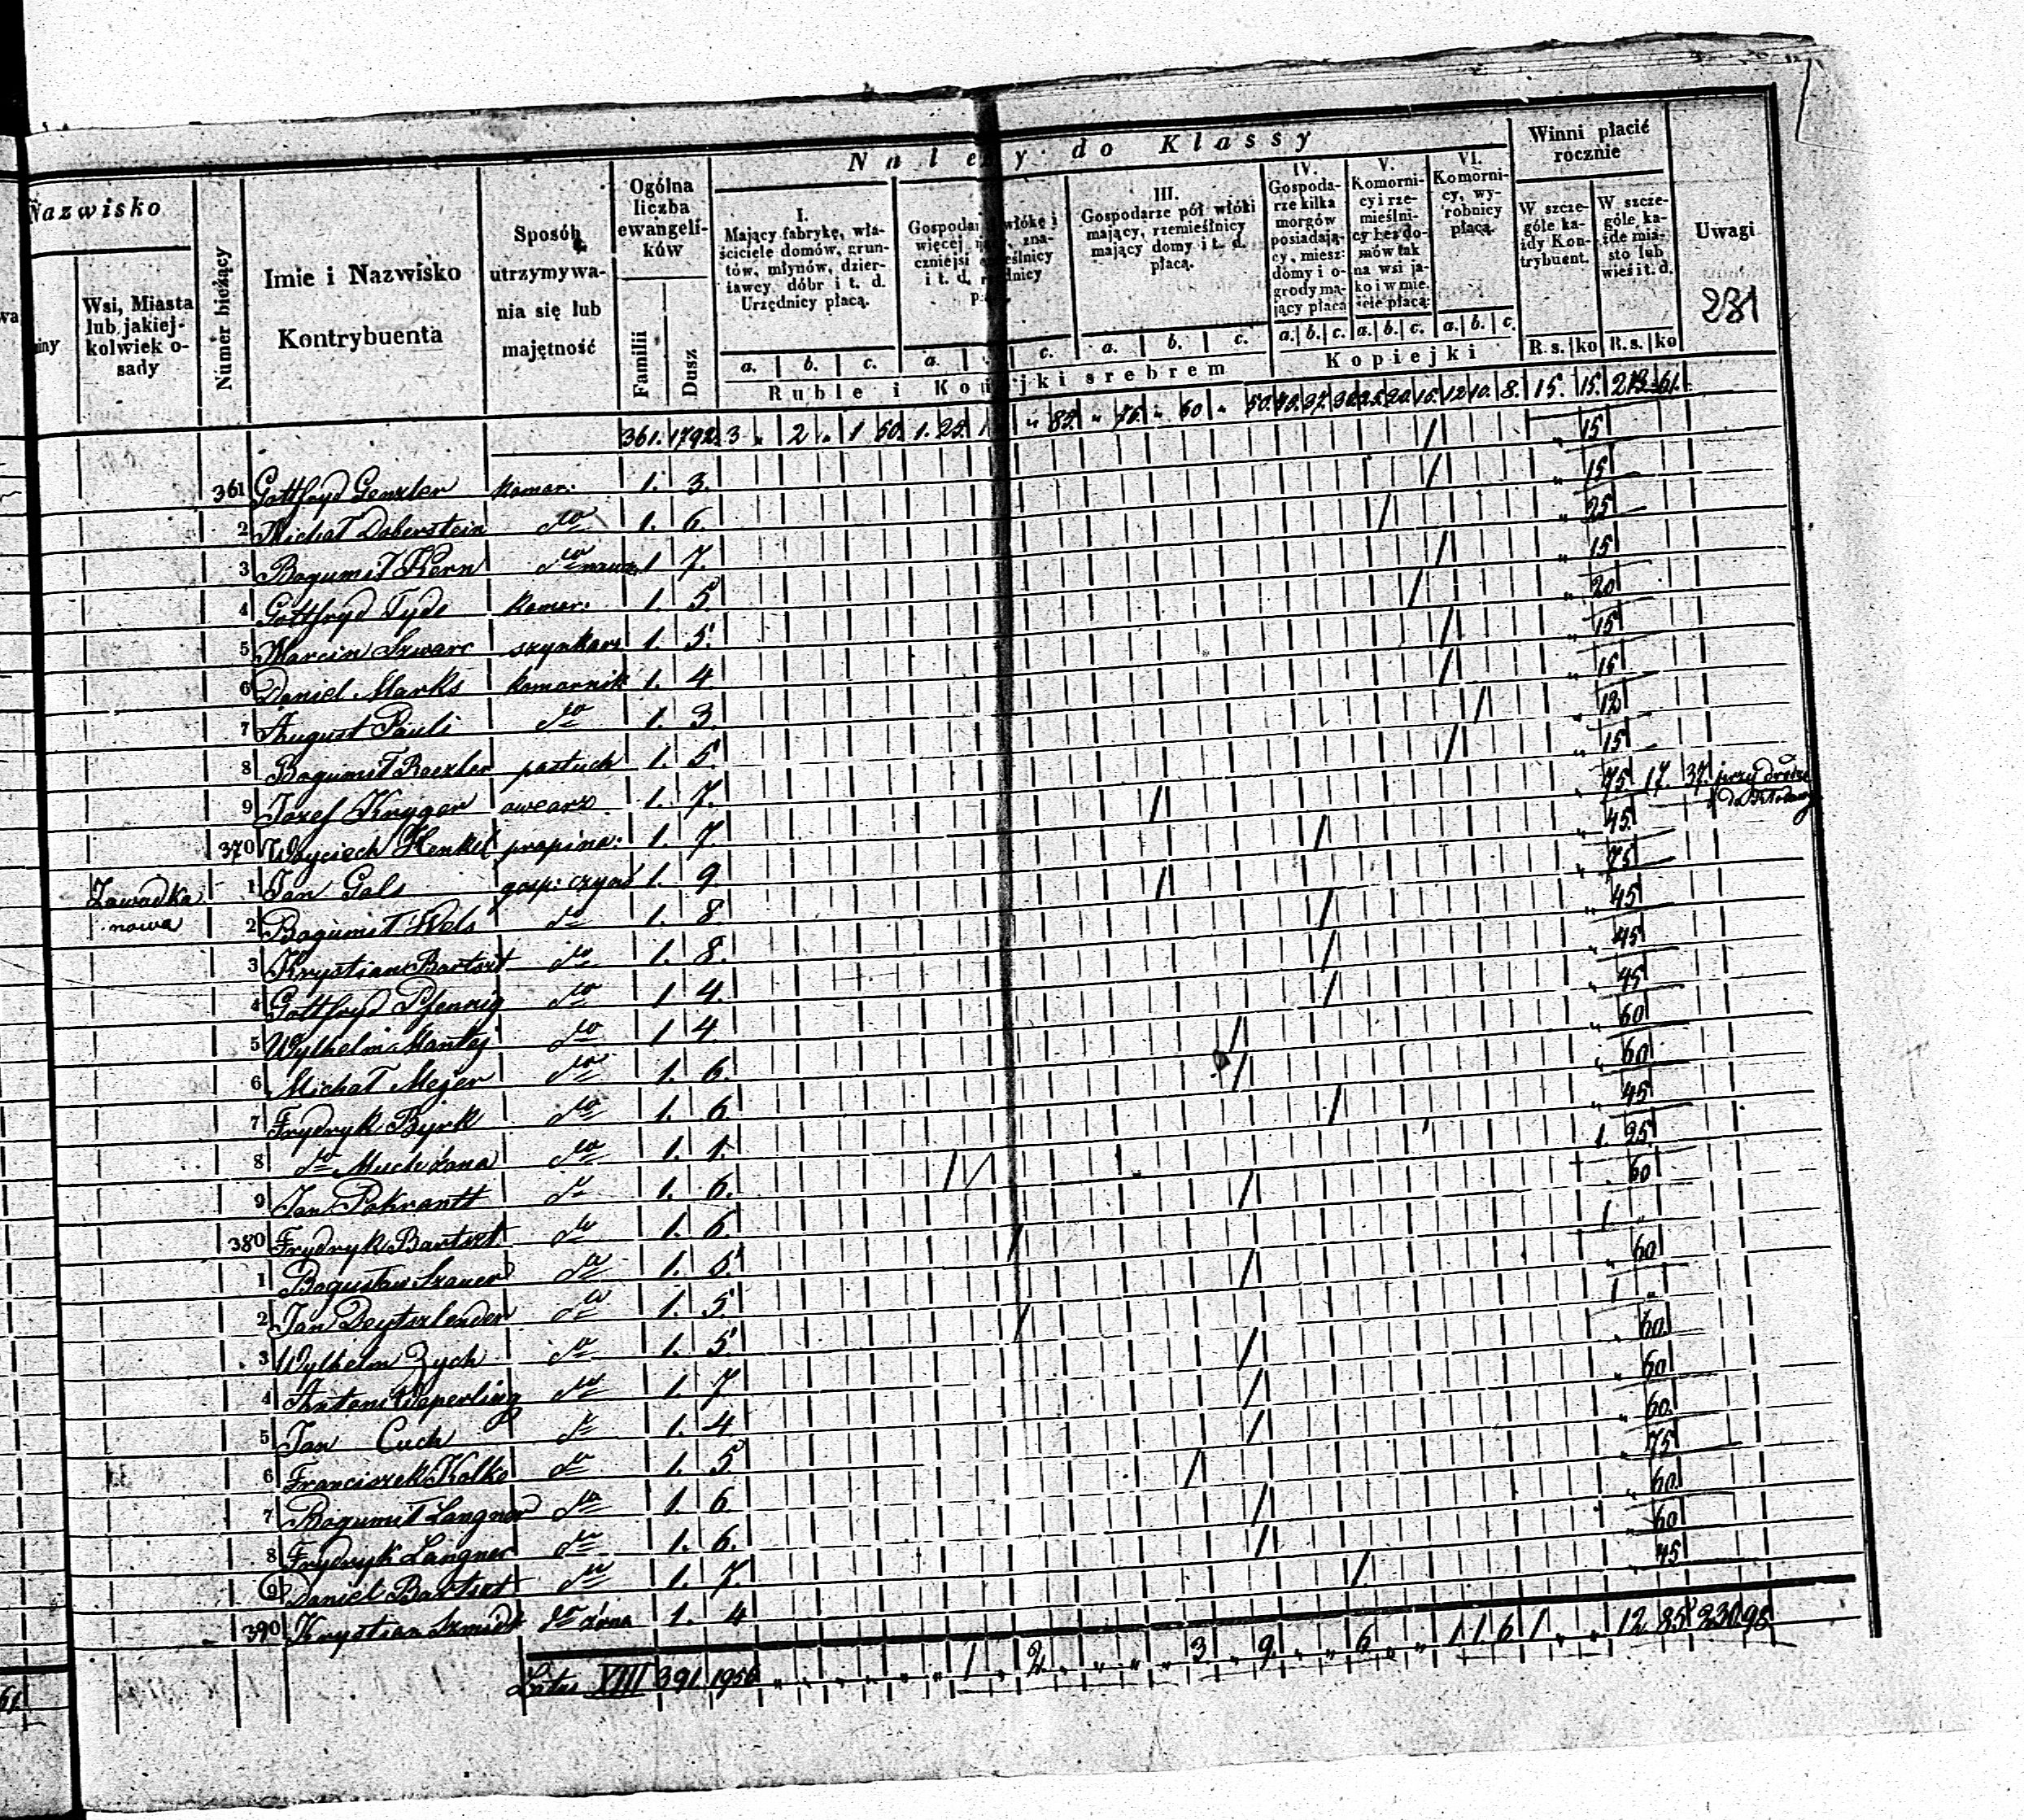 Należy do Klassy
Nazwisko
Wsi, Miasta lub jakiej-kolwiek o-sady
Numer bieżący
Imie i Nazwisko Kontrybuenta
Sposób utrzymywa-nia się lub majętność
Ogólna liczba ewangeli-ków
Familii
Dusz
I. Mający fabrykę, wła-ściciele domów, grun-tów, młynów, dzier-żawcy dóbr i t. d. Urzędnicy płacą.
III. Gospodarze pół włóki mający, rzemieślnicy mający domy i t. d. płacą.
IV. Gospoda-rze kilka morgów posiadają-cy, miesz: domy i o-grody ma-jący płacą
V. Komorni-cy i rze-mieślni-cy bez do-mów tak na wsi ja-ko i w mie-ście płacą:
VI. Komorni-cy, wy-robnicy płacą.
Winni płacić rocznie
W szcze-góle ka-żdy Kon-trybuent.
W szcze-góle ka-żde mia-sto lub wieś i t. d.
Uwagi
231
a. b. c. a. c. a. b. c. a. b. c. a. b. c. a. b. c. R. s. ko R. s. ko
Ruble i Kopiejki srebrem Kopiejki
361. 1792. 3 „ 2 „ 1 50. 1. 25. 1 „ 83. „ 75. „ 60 „ 50. 45. 37. 30. 25. 20. 15. 12 10. 8. 15. 15. 213. 61.
361 Gottfryd Genzler komor: 1. 3. / „ 15
2 Michał Doberstein dto 1. 6. / „ 15
3 Bogumił Kern dto 1. 7. / „ 25
4 Gottfryd Tyde komor: 1. 5. / „ 15
5 Marcin Szwarc szynkarz 1. 5. / „ 20
6 Daniel Marks komornik 1. 4. / „ 15
7 August Pauli dto 1. 3. / „ 15
8 Bogumił Roezler pastuch 1. 5. / „ 12
9 Jozef Krygger owcarz 1. 7. / „ 15
370 Woyciech Henkel propina: 1. 7. / „ 75. 17. 37. przy drodze
Zawadka nowa 1 Jan Gals gosp: czynsz 1. 9. / „ 45
2 Bogumił Wels dto 1. 8 / „ 75
3 Krystian Bartszt dto 1. 8. / „ 45
4 Gottfryd Pfennig dto 1 4. / „ 45
5 Wylhelm Mantej dto 1 4. / „ 45
6 Michał Mejer dto 1. 6. / „ 60
7 Frydryk Byrk dto 1. 6 / „ 60
8 dto Much żona dto 1. 1. / „ 45
9 Jan Pokrantt dto 1. 6. / 1. 25
380 Frydryk Bartszt dto 1. 6. / „ 60
1 Bogusław Szauer dto 1. 5. / 1 „
2 Jan Deytszlender dto 1. 5. / „ 60
3 Wylhelm Zych dto 1. 5. / 1 „
4 Antoni Weperling dto 1. 7 / „ 60.
5 Jan Cuch dto 1. 4 / „ 60
6 Franciszek Kolko dto 1. 5 / „ 60.
7 Bogumił Langner dto 1. 6 / „ 75
8 Frydryk Langner dto 1. 6. / „ 60.
9 Daniel Bartszt dto 1. 7. / „ 60
390 Krystian Szmidt dto żona 1. 4 / „ 45
Latus XIII 391. 1956 1 „ 2 „ „ „ 3 „ 9 „ „ 6 „ 1 1 6 1 „ „ 12 85 230 98